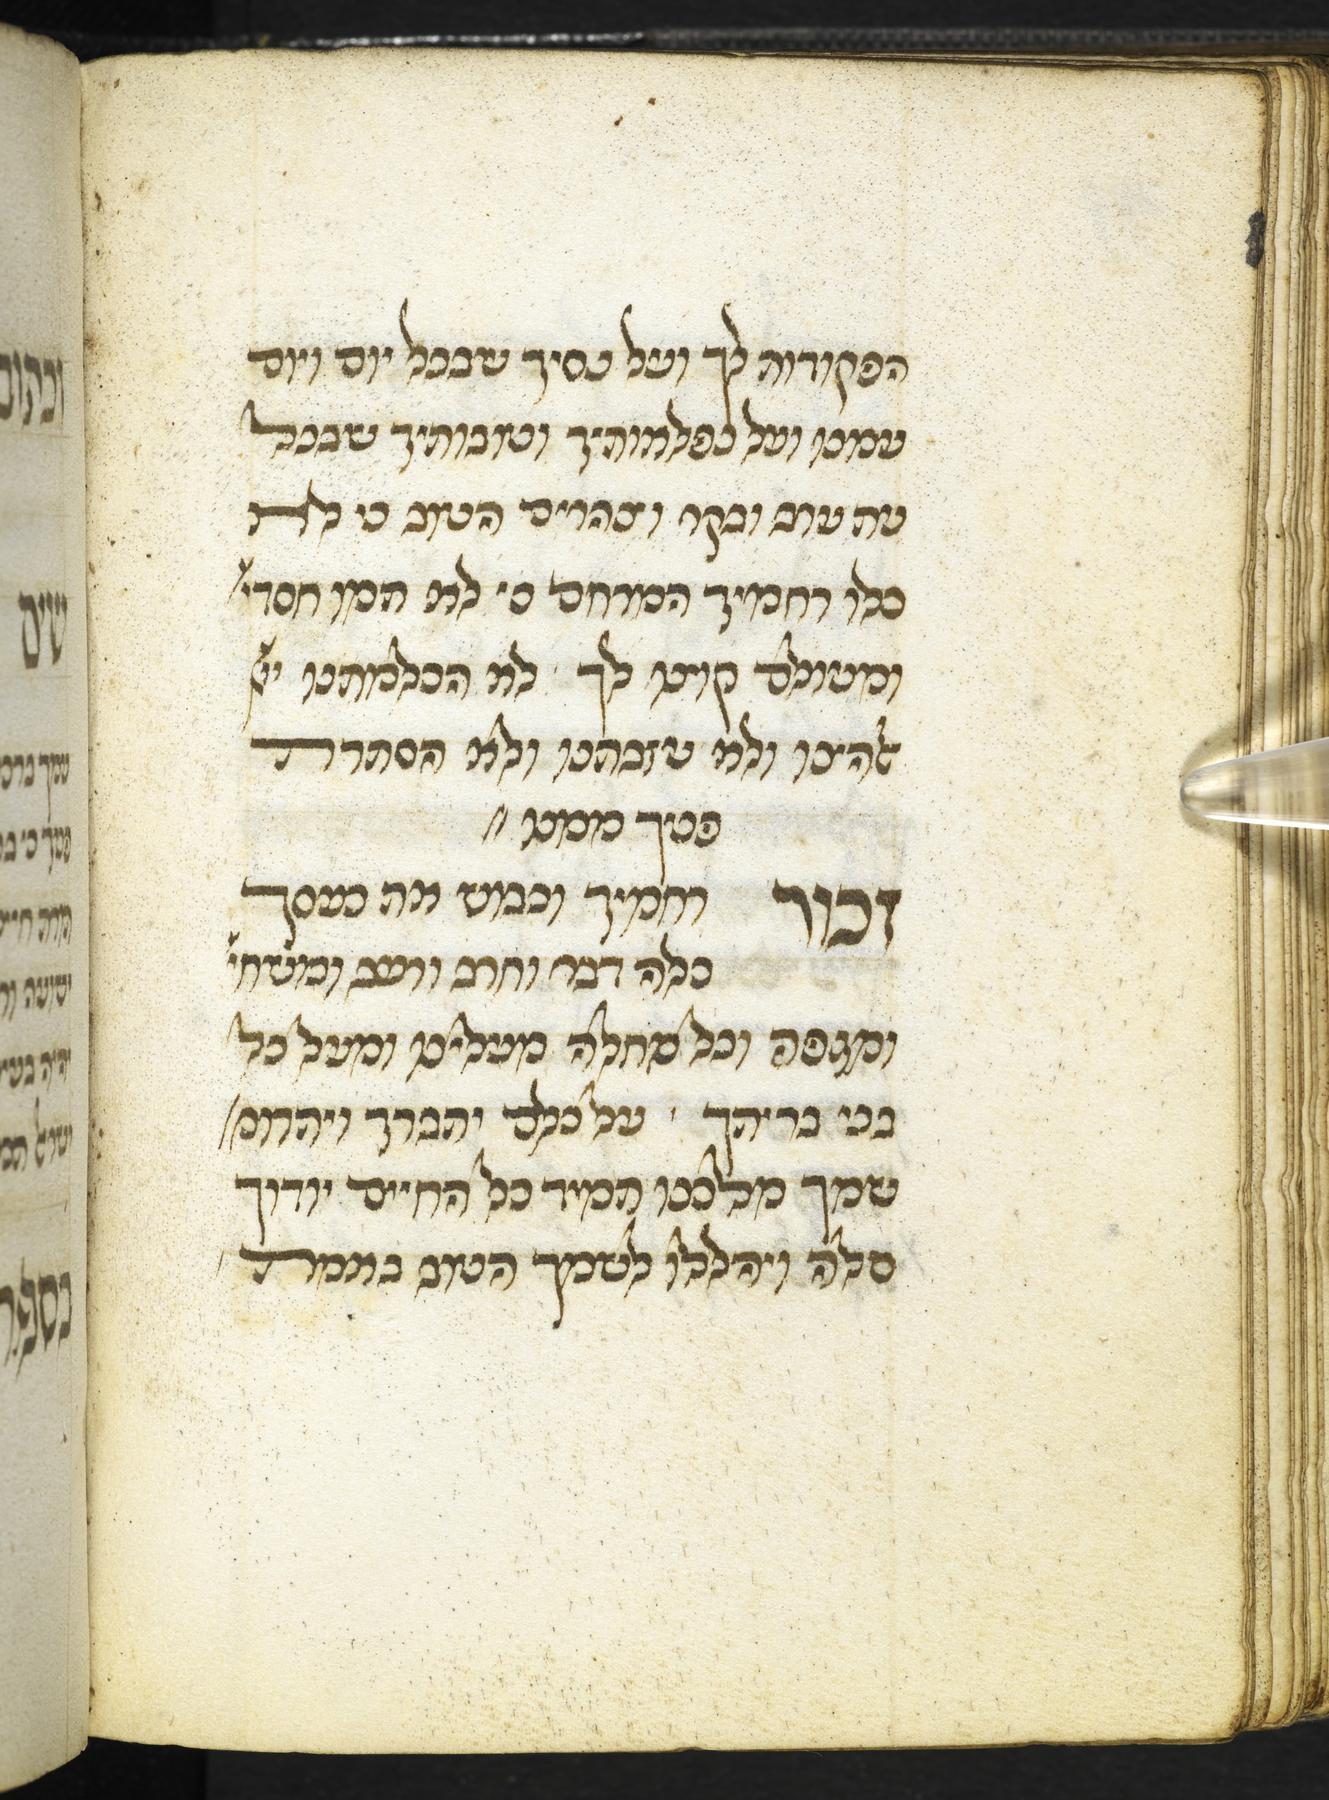 הפקודות לך ועל נסיך שבכל יום ויום
עמנו ועל נפלאותיך וטובותיך שבכל
עת ערב ובקר וצהרים הטוב כי לא
כלו רחמיך המרחם כי לא תמו חסדי
ומעולם קוינו לך לא הכלמתנו יי
אלהינו ולא עזבתנו ולא הסתרת
פניך ממנו
זכור רחמיך וכבוש את כעסך
כלה דבר וחרב ורעב ומשחי
ומגפה וכל מחלה מעלינו ומעל כל
בני בריתך על כלם יתברך ויתרומ
שמך מלכנו תמיד כל החיים יודוך
סלה ויהללו לשמך הטוב באמת